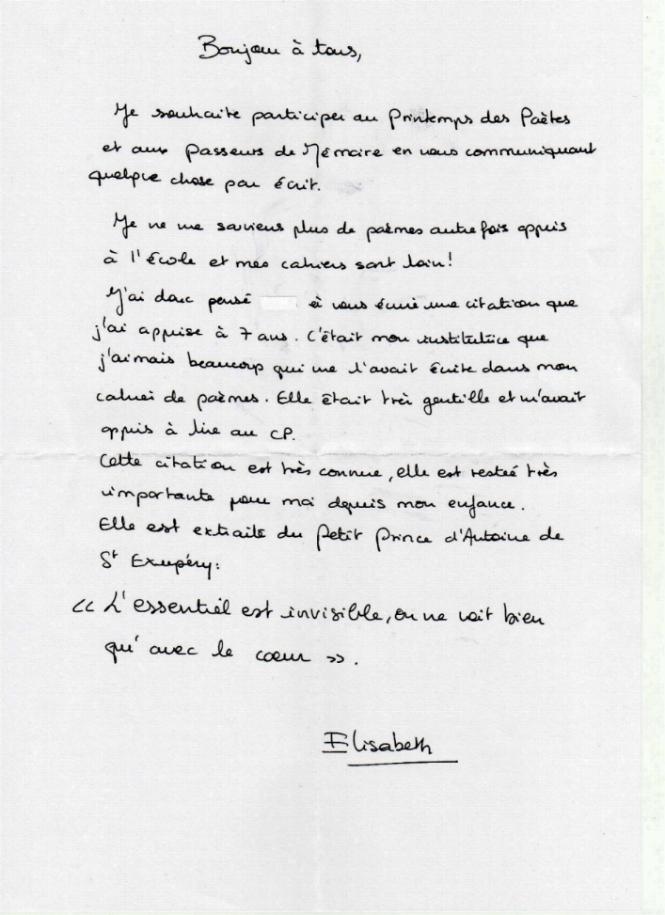 Bonjour à tous,
Je souhaite participer au Printemps des Poètes
et aux Passeurs de Mémoire en vous communiquant
quelque chose par écrit.
Je ne me souviens plus de poèmes autrefois appris
à l'école et mes cahiers sont loin!
J'ai donc pensé à vous écrire une citation que
j'ai apprise à 7 ans. C'était mon institutrice que
j'aimais beaucoup qui me l'avait écrite dans mon
cahier de poèmes. Elle était très gentille et m'avait
appris à lire au CP.
Cette citation est très connue, elle est restée très
importante pour moi depuis mon enfance.
Elle est extraite du Petit Prince d'Antoine de
St Exupéry:
« L'essentiel est invisible, on ne voit bien
qu'avec le coeur ».
Elisabeth